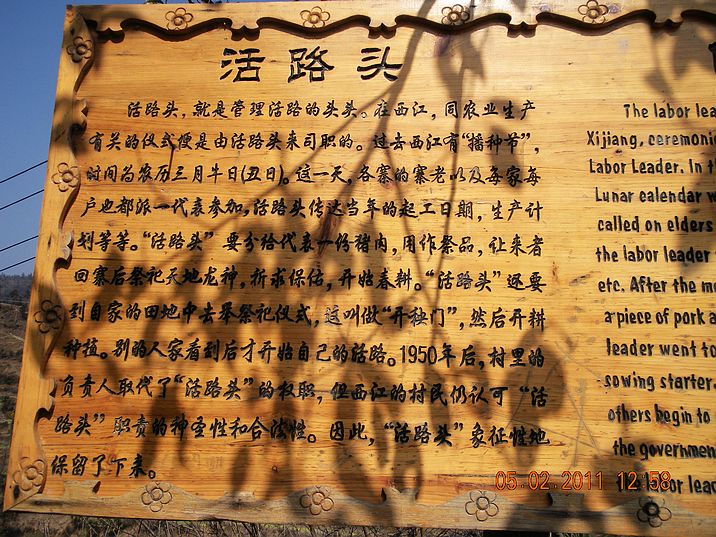 活路头
活路头，就是管理活路的头头。在西江，同农业生产
有关的仪式便是由活路头来司职的。过去西江有“播种节”，
时间为农历三月牛日(丑日)。这一天，各寨的寨老以及每家每
户也都派一代表参加，活路头传达当年的起工日期，生产计
划等等。“活路头”要分给代表一份猪肉，用作祭品，让来者
回寨后祭祀天地龙神，祈求保佑，开始春耕。“活路头”还要
到自家的田地中去举祭祀仪式，这叫做“开秧门”，然后开耕
种植。别的人家看到后才开始自己的活路。1950年后，村里的
负责人取代了“活路头”的权职，但西江的村民仍认可“活
路头”职责的神圣性和合法性。因此，“活路头”象征性地
保留了下来。
The labor lea
Xijiang, ceremonie
Labor Leader. In t
Lunar calendar w
called on elders
the labor leader
etc. After the me
a piece of pork a
leader went to
sowing starter.
others begin to
the governmen
labor leac
05.02.2011 12:58